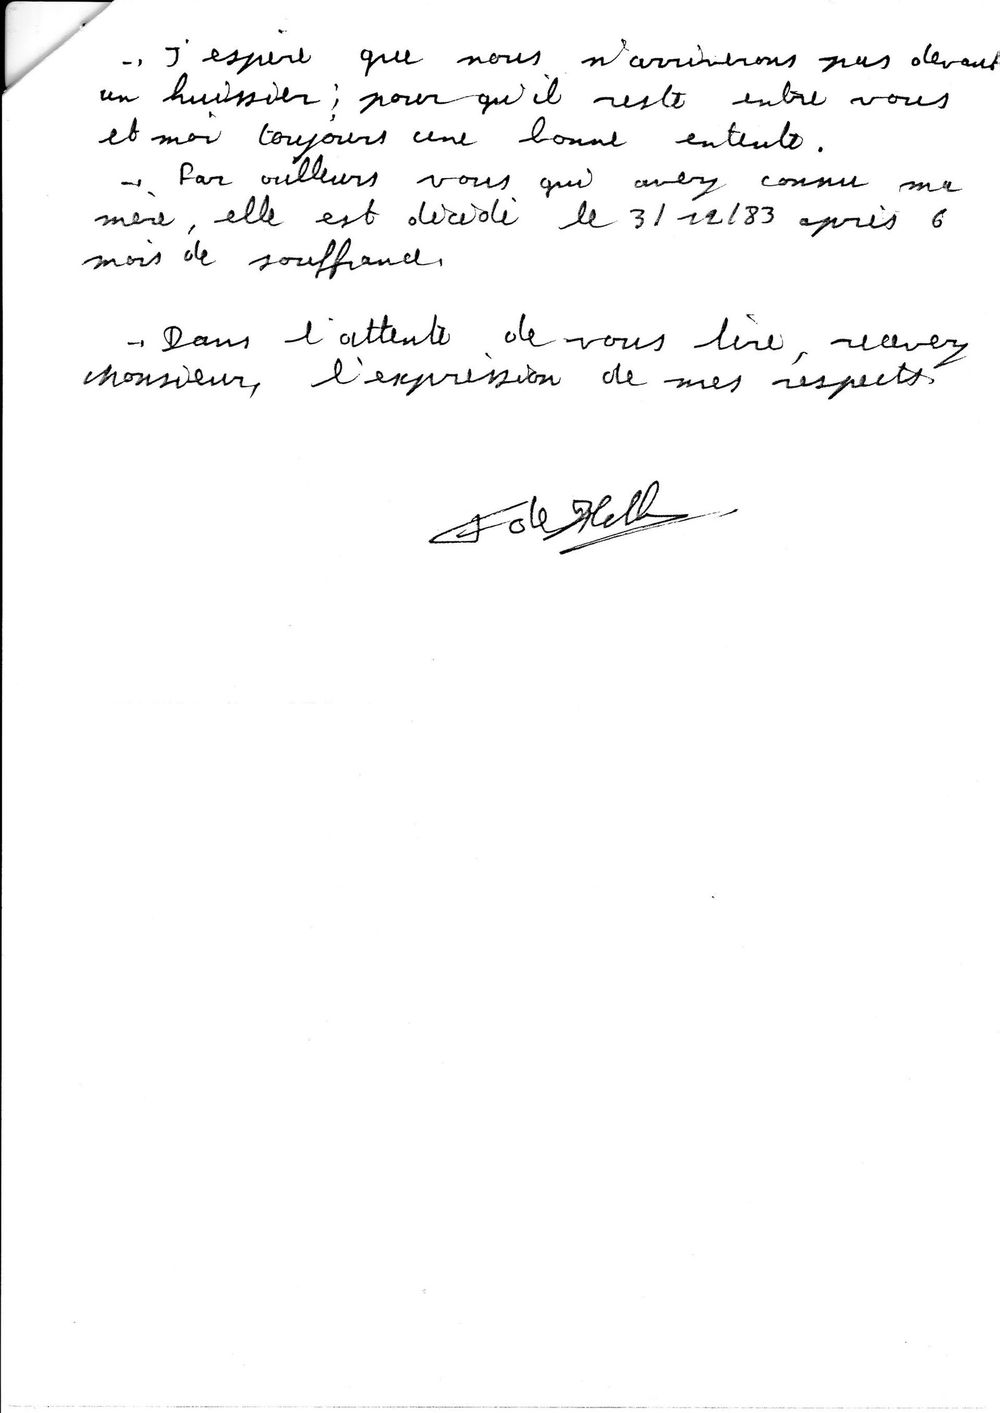 -. J'espère que nous n'arriverons pas devant
un huissier; pour qu'il reste entre vous
et moi toujours une bonne entente.
-. Par ailleurs vous qui avez connu ma
mère, elle est décédé le 31/12/83 après 6
mois de souffrance.
-. Dans l'attente de vous lire, recevez
Monsieur, l'expression de mes respects.